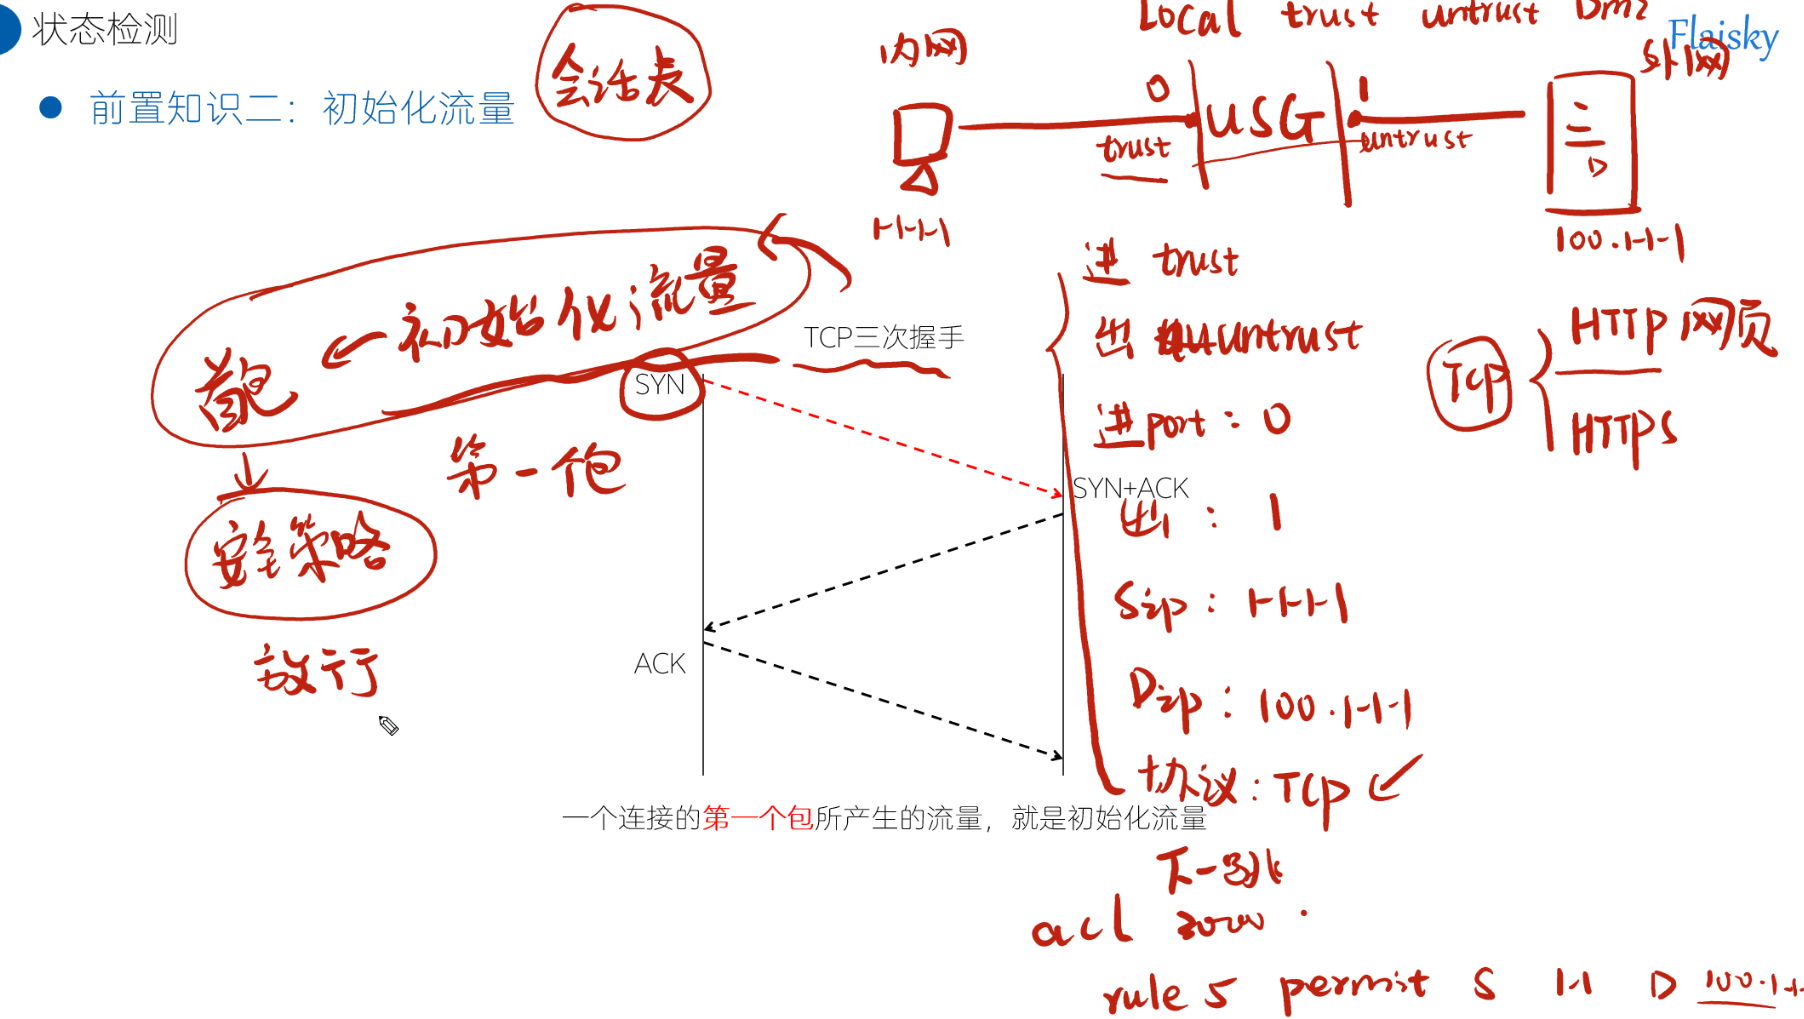 状态检测
Local trust untrust Dmz
Flaisky
前置知识二：初始化流量
会话表
内网
外网
0
USG
1
trust
untrust
1.1.1.1
100.1.1.1
进 trust
出 untrust
进port：0
出：1
Sip：1.1.1.1
Dip：100.1.1.1
协议：TCP
下一跳
TCP
HTTP 网页
HTTPS
首包
初始化流量
TCP三次握手
SYN
第一个包
SYN+ACK
安全策略
放行
ACK
一个连接的第一个包所产生的流量，就是初始化流量
acl
rule 5 permit S 1.1 D 100.1.1